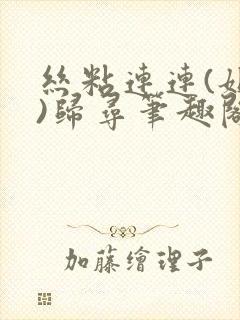 絲粘連連(
)歸尋筆趣閣
加藤繪理子